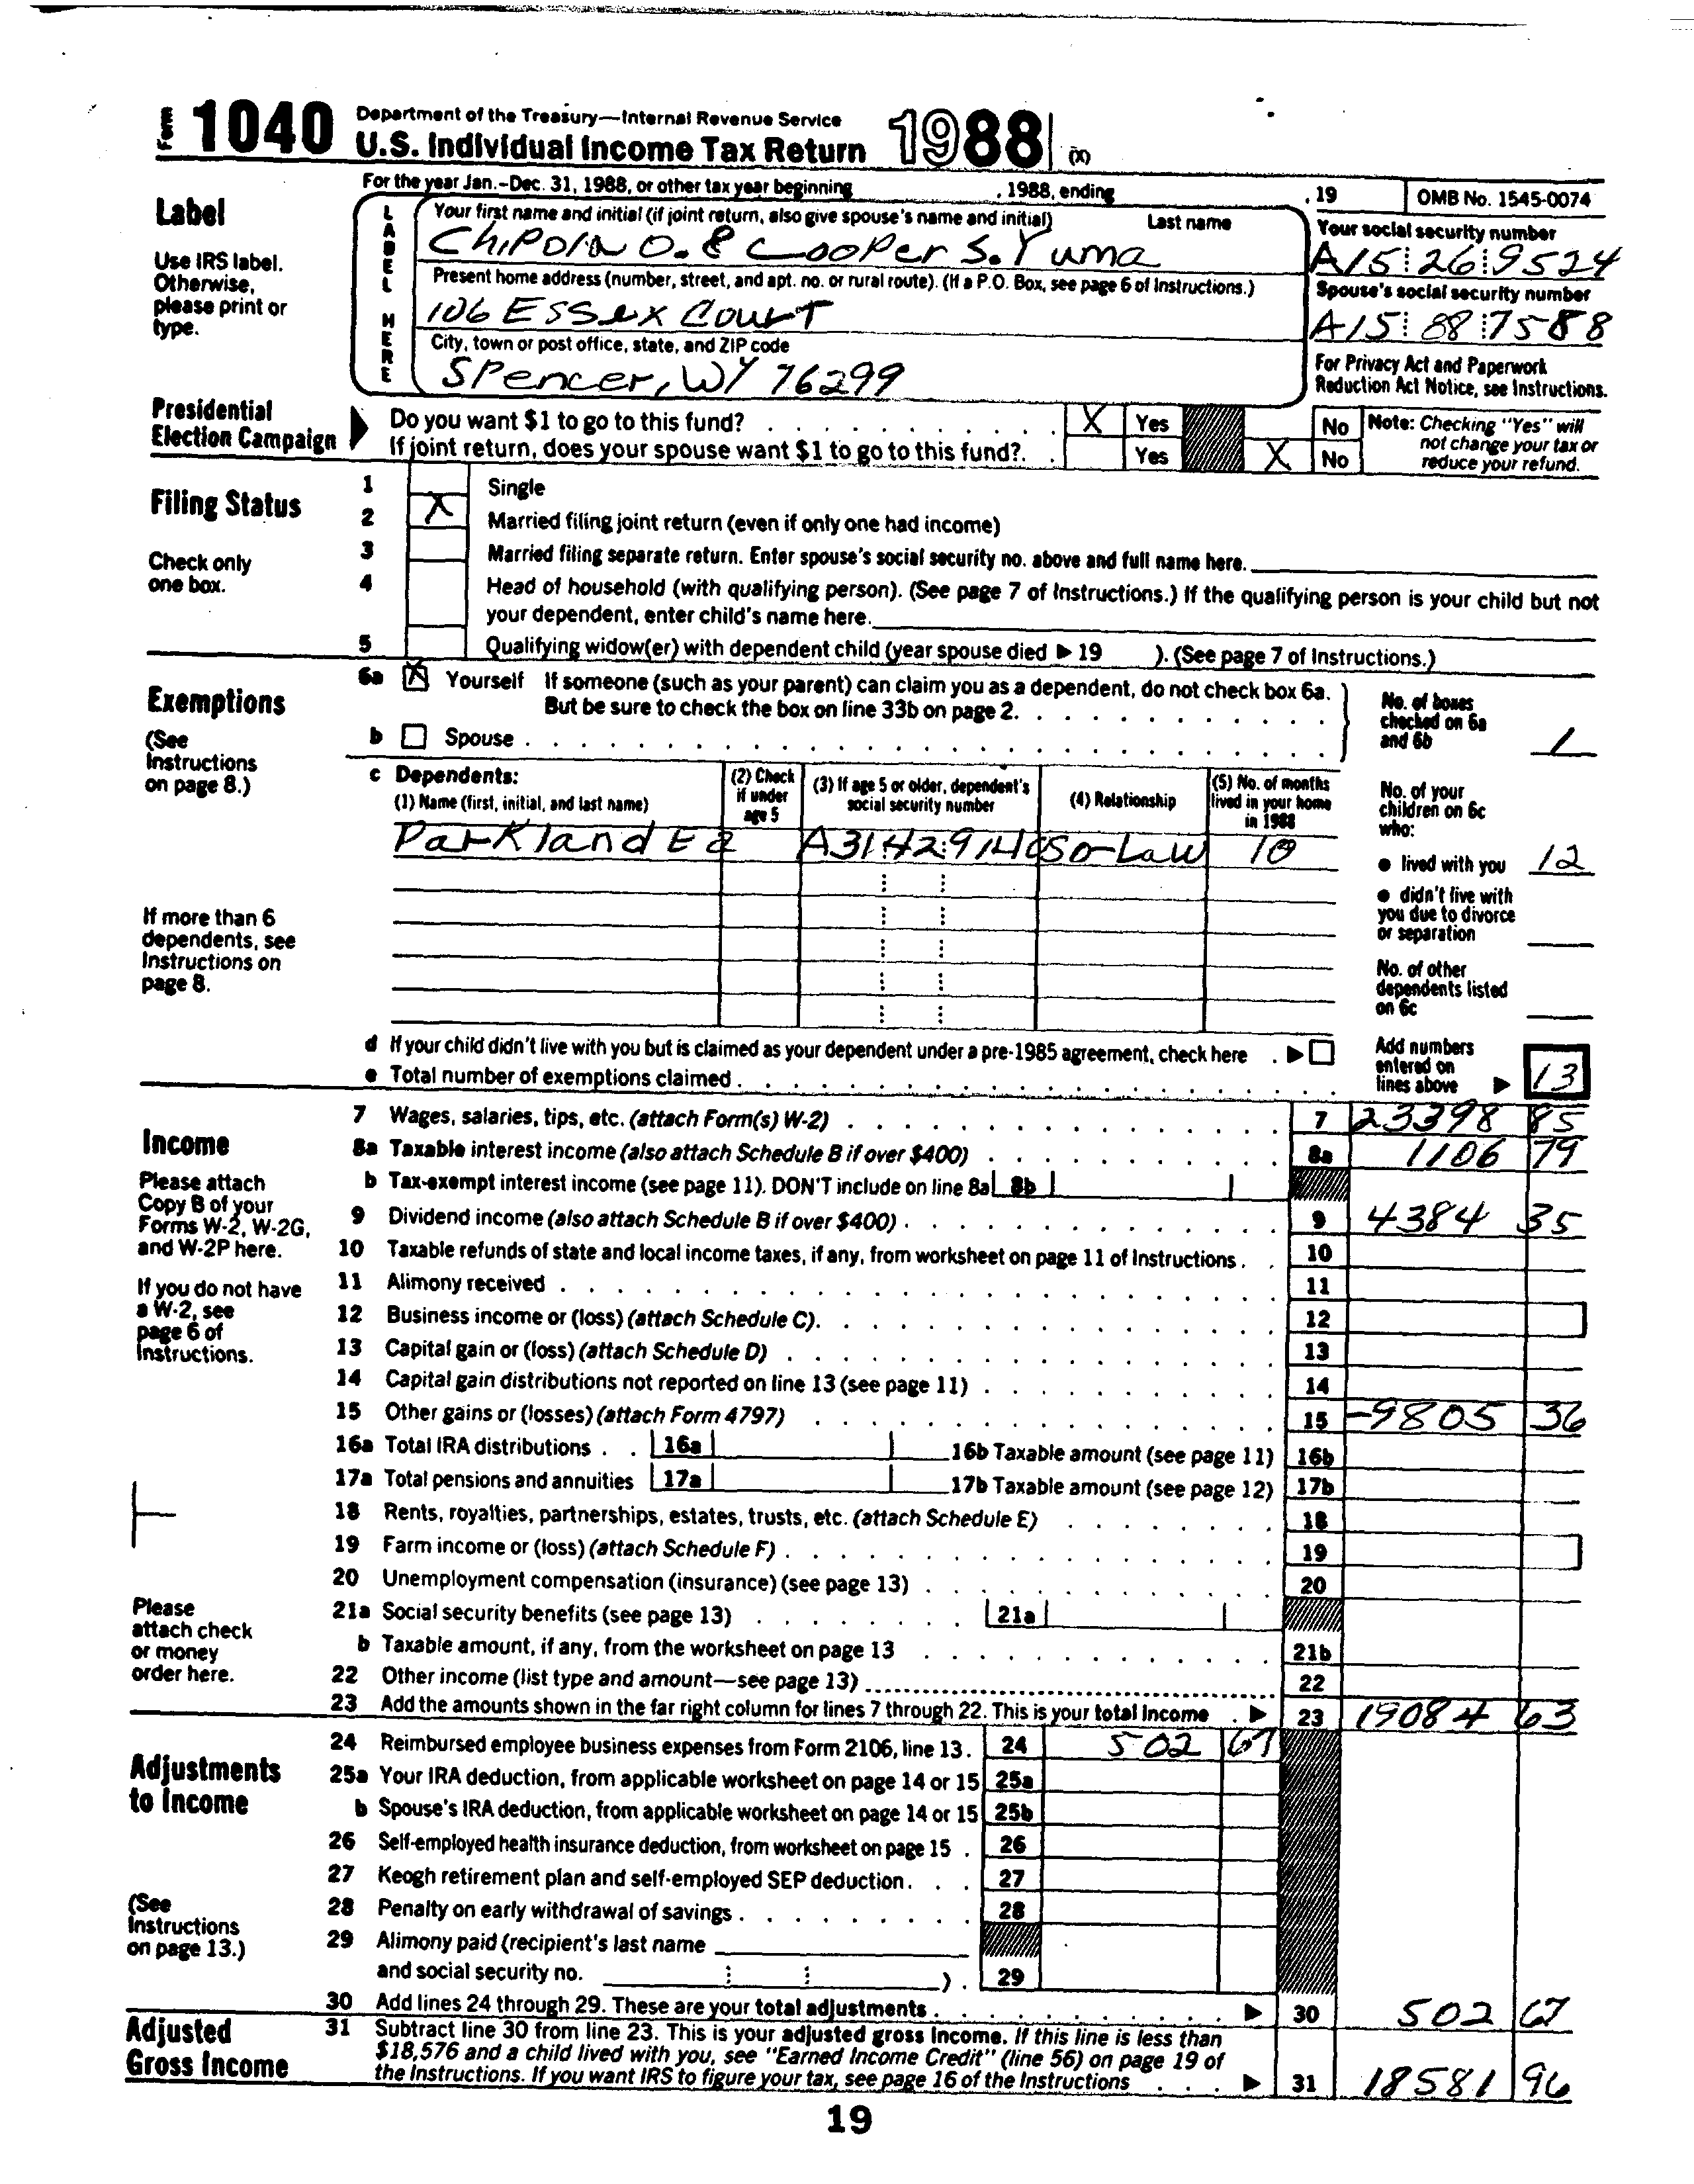 Form 1040 Department of the Treasury—Internal Revenue Service
U.S. Individual Income Tax Return 1988 (X)
For the year Jan.-Dec. 31, 1988, or other tax year beginning , 1988, ending , 19 OMB No. 1545-0074
Label
Use IRS label. Otherwise, please print or type.
LABEL HERE
Your first name and initial (if joint return, also give spouse's name and initial) Last name
Chipoln O. & Cooper S. Yuma
Your social security number
A15 26 9524
Present home address (number, street, and apt. no. or rural route). (If a P.O. Box, see page 6 of Instructions.)
106 Essex Court
Spouse's social security number
A15 88 7588
City, town or post office, state, and ZIP code
Spencer, WY 76299
For Privacy Act and Paperwork Reduction Act Notice, see Instructions.
Presidential Election Campaign
Do you want $1 to go to this fund? X Yes No
If joint return, does your spouse want $1 to go to this fund? Yes X No
Note: Checking "Yes" will not change your tax or reduce your refund.
Filing Status
Check only one box.
1 Single
2 X Married filing joint return (even if only one had income)
3 Married filing separate return. Enter spouse's social security no. above and full name here.
4 Head of household (with qualifying person). (See page 7 of Instructions.) If the qualifying person is your child but not
your dependent, enter child's name here.
5 Qualifying widow(er) with dependent child (year spouse died ▶ 19 ). (See page 7 of Instructions.)
Exemptions
(See Instructions on page 8.)
6a X Yourself If someone (such as your parent) can claim you as a dependent, do not check box 6a.
But be sure to check the box on line 33b on page 2.
b Spouse
No. of boxes checked on 6a and 6b 1
c Dependents:
(1) Name (first, initial, and last name) (2) Check if under age 5 (3) If age 5 or older, dependent's social security number (4) Relationship (5) No. of months lived in your home in 1988
Parkland E 10
No. of your children on 6c who:
● lived with you 12
● didn't live with you due to divorce or separation
No. of other dependents listed on 6c
If more than 6 dependents, see Instructions on page 8.
d If your child didn't live with you but is claimed as your dependent under a pre-1985 agreement, check here ▶
e Total number of exemptions claimed
Add numbers entered on lines above ▶ 13
Income
Please attach Copy B of your Forms W-2, W-2G, and W-2P here.
If you do not have a W-2, see page 6 of Instructions.
Please attach check or money order here.
7 Wages, salaries, tips, etc. (attach Form(s) W-2) 7 23398 85
8a Taxable interest income (also attach Schedule B if over $400) 8a 1106 79
b Tax-exempt interest income (see page 11). DON'T include on line 8a 8b
9 Dividend income (also attach Schedule B if over $400) 9 4384 35
10 Taxable refunds of state and local income taxes, if any, from worksheet on page 11 of Instructions 10
11 Alimony received 11
12 Business income or (loss) (attach Schedule C) 12
13 Capital gain or (loss) (attach Schedule D) 13
14 Capital gain distributions not reported on line 13 (see page 11) 14
15 Other gains or (losses) (attach Form 4797) 15 -9805 36
16a Total IRA distributions 16a 16b Taxable amount (see page 11) 16b
17a Total pensions and annuities 17a 17b Taxable amount (see page 12) 17b
18 Rents, royalties, partnerships, estates, trusts, etc. (attach Schedule E) 18
19 Farm income or (loss) (attach Schedule F) 19
20 Unemployment compensation (insurance) (see page 13) 20
21a Social security benefits (see page 13) 21a
b Taxable amount, if any, from the worksheet on page 13 21b
22 Other income (list type and amount—see page 13) 22
23 Add the amounts shown in the far right column for lines 7 through 22. This is your total income ▶ 23 19084 63
Adjustments to Income
(See Instructions on page 13.)
24 Reimbursed employee business expenses from Form 2106, line 13. 24 502 67
25a Your IRA deduction, from applicable worksheet on page 14 or 15 25a
b Spouse's IRA deduction, from applicable worksheet on page 14 or 15 25b
26 Self-employed health insurance deduction, from worksheet on page 15 26
27 Keogh retirement plan and self-employed SEP deduction 27
28 Penalty on early withdrawal of savings 28
29 Alimony paid (recipient's last name
and social security no. ) 29
30 Add lines 24 through 29. These are your total adjustments ▶ 30 502 67
Adjusted Gross Income
31 Subtract line 30 from line 23. This is your adjusted gross income. If this line is less than
$18,576 and a child lived with you, see "Earned Income Credit" (line 56) on page 19 of
the Instructions. If you want IRS to figure your tax, see page 16 of the Instructions ▶ 31 18581 96
19